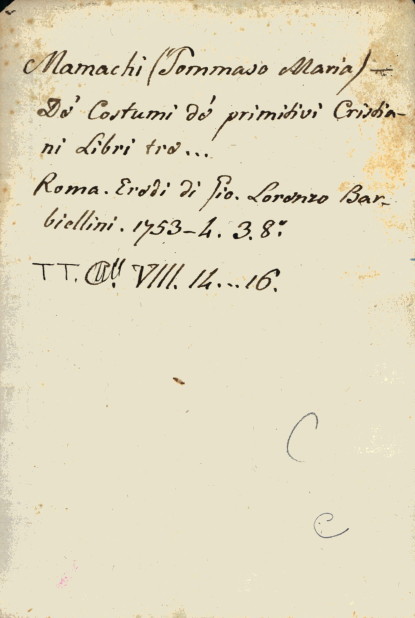 Mamachi (Tommaso Maria) —
De' Costumi de' primitivi Cristia-
ni Libri tre...
Roma. Eredi di Gio. Lorenzo Bar-
biellini. 1753-4. 3. 8.º
TT. VIII. 14...16.
C
C